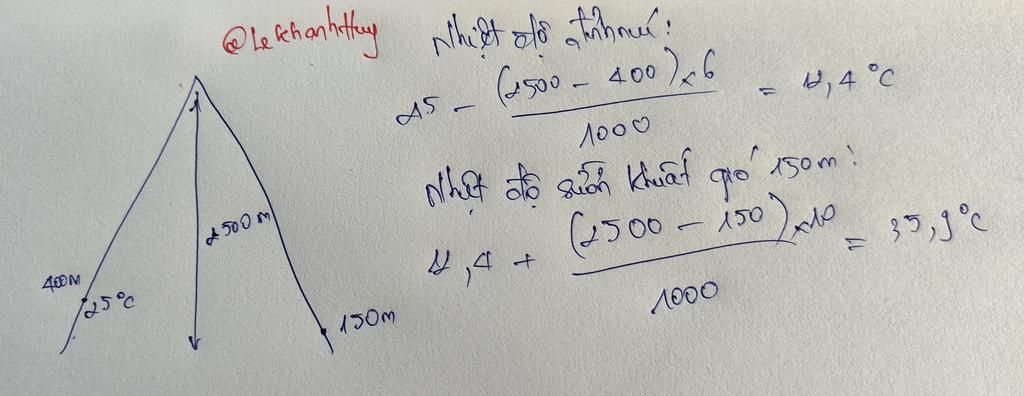 @LeKhanhHuy
Nhiệt độ đỉnh núi:
25 - (2500 - 400) x 6 / 1000 = 12,4°C
Nhiệt độ sườn khuất gió 150m:
12,4 + (2500 - 150) x 10 / 1000 = 35,9°C
2500m
400m
25°C
150m